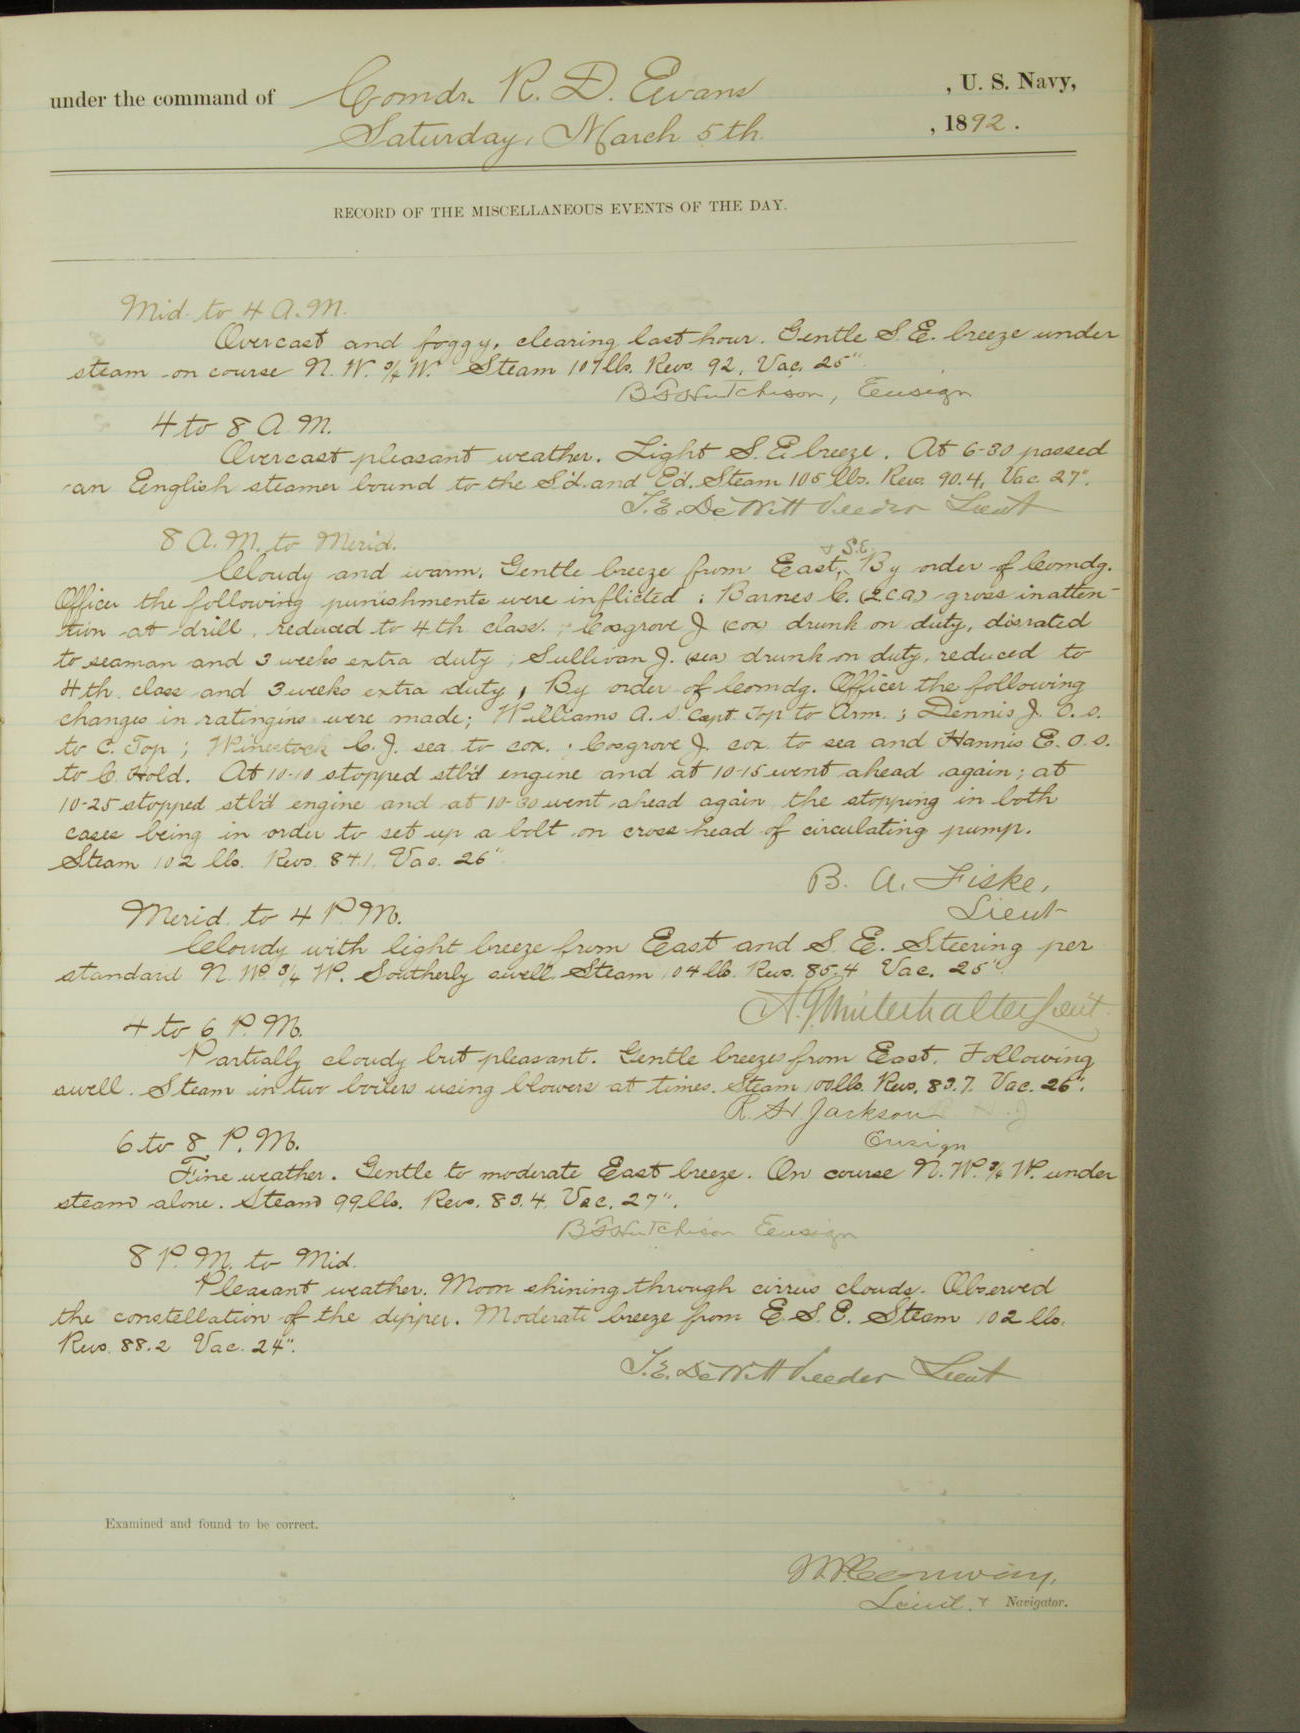 under the command of Comdr. R. D. Evans , U. S. Navy,
Saturday, March 5th. , 1892.
RECORD OF THE MISCELLANEOUS EVENTS OF THE DAY.
Mid. to 4 A.M.
Overcast and foggy, clearing last hour. Gentle S.E. breeze under
steam on course N.W. 3/4 W. Steam 107 lbs. Revs. 92, Vac. 25".
B F Hutchison, Ensign
4 to 8 A.M.
Overcast pleasant weather. Light S.E breeze. At 6-30 passed
an English steamer bound to the S'd. and E'd. Steam 105 lbs. Revs. 90.4, Vac. 27".
T.E. DeWitt Veeder Lieut
8 A.M. to Merid.
Cloudy and warm. Gentle breeze from East, & S.E. By order of Comdg.
Officer the following punishments were inflicted : Barnes C. (2 C a) gross inatten-
tion at drill, reduced to 4th class. ; Cosgrove J (cox) drunk on duty, disrated
to seaman and 3 weeks extra duty ; Sullivan J. (sea) drunk on duty, reduced to
4th class and 3 weeks extra duty , By order of Comdg. Officer the following
changes in ratingins were made; Williams A. S. Capt Top to Arm. ; Dennis J. O. S.
to C. Top ; Winestock C. J. sea to cox. ; Cosgrove J. cox to sea and Hannis E. O. S.
to C. Hold. At 10-10 stopped stb'd engine and at 10-15 went ahead again ; at
10-25 stopped stb'd engine and at 10-30 went ahead again the stopping in both
cases being in order to set up a bolt on cross head of circulating pump.
Steam 102 lbs. Revs. 84.1. Vac. 26".
B. A. Fiske,
Lieut
Merid. to 4 P.M.
Cloudy with light breeze from East and S. E. Steering per
standard N. W. 3/4 W. Southerly swell Steam 104 lb. Revs. 85.4 Vac. 25".
A. G. Winterhalter Lieut.
4 to 6 P.M.
Partially cloudy but pleasant. Gentle breezes from East. Following
swell. Steam in two boilers using blowers at times. Steam 100 lbs. Revs. 83.7. Vac. 26".
R. H. Jackson
Ensign
6 to 8 P.M.
Fine weather. Gentle to moderate East breeze. On course N. W. 3/4 W. under
steam alone. Steam 99 lbs. Revs. 83.4. Vac. 27".
B F Hutchison Ensign
8 P.M. to Mid.
Pleasant weather. Moon shining through cirrus clouds. Observed
the constellation of the dipper. Moderate breeze from E. S. E. Steam 102 lbs.
Revs. 88.2 Vac. 24".
T.E. DeWitt Veeder Lieut
Examined and found to be correct.
W.P. Conway,
Lieut. & Navigator.